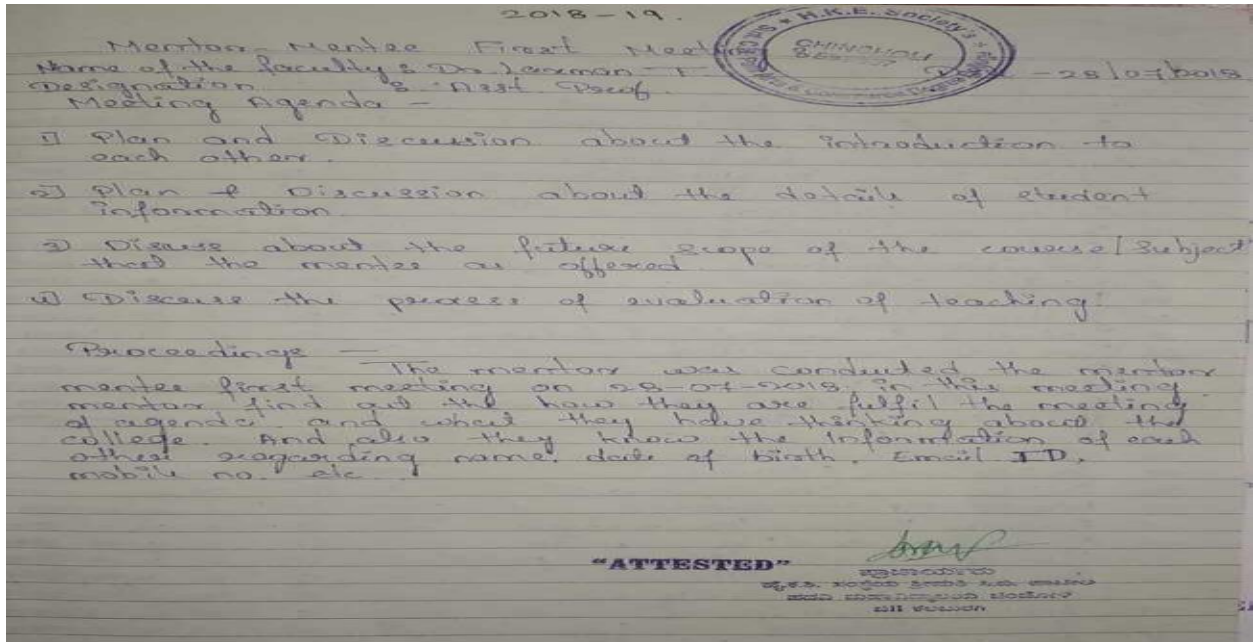 2018-19.
Mentor-Mentee First Meet
H.K.E. Society's
CHINCHOLI
Name of the faculty : Dr Laxman - 28/07/2018
Designation : Asst Prof.
Meeting Agenda -
1] Plan and Discussion about the introduction to
each other.
2] Plan & Discussion about the details of student
information
3) Discuss about the future scope of the course/Subject
that the mentee as offered.
4) Discuss the process of evaluation of teaching.
Proceedings -
The mentor was conducted the mentor
mentee first meeting on 28-07-2018. in this meeting
mentor find out the how they are fulfil the meeting
of agenda. and what they have thinking about the
college. And also they know the Information of each
other regarding name. date of birth. Email ID.
mobile no. etc.
"ATTESTED"